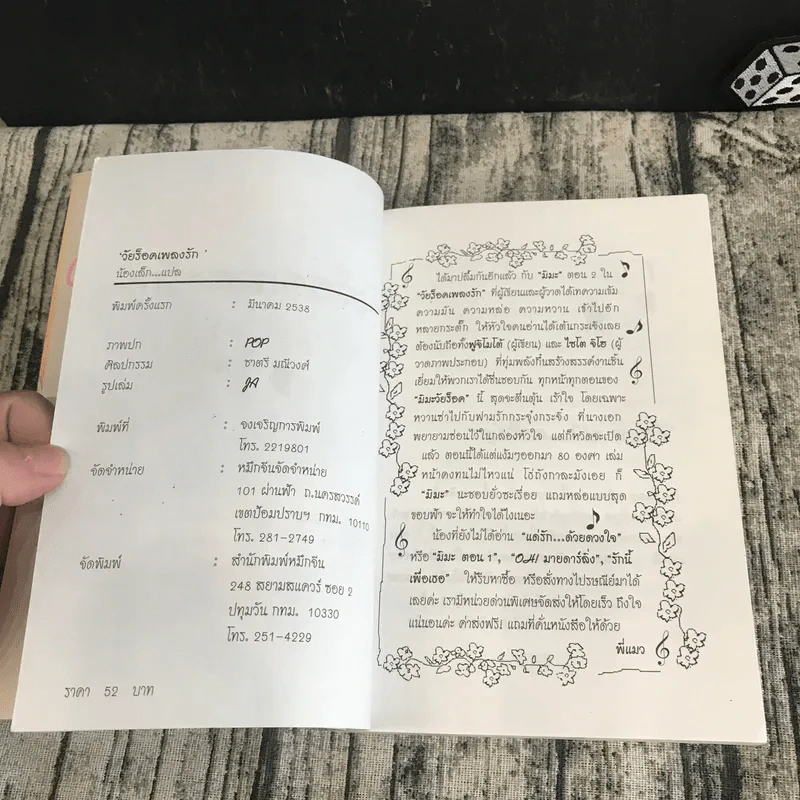 'วัยร็อคเพลงรัก'
น้องเล็ก...แปล
พิมพ์ครั้งแรก : มีนาคม 2538
ภาพปก : POP
ศิลปกรรม : ชาตรี มณีวงศ์
รูปเล่ม : JA
พิมพ์ที่ : จงเจริญการพิมพ์
โทร. 2219801
จัดจำหน่าย : หมึกจีนจัดจำหน่าย
101 ผ่านฟ้า ถ.นครสวรรค์
เขตป้อมปราบฯ กทม. 10110
โทร. 281-2749
จัดพิมพ์ : สำนักพิมพ์หมึกจีน
248 สยามสแควร์ ซอย 2
ปทุมวัน กทม. 10330
โทร. 251-4229
ราคา 52 บาท
ได้มาปลื้มกันอีกแล้ว กับ "มิมะ" ตอน 2 ใน
"วัยร็อคเพลงรัก" ที่ผู้เขียนและผู้วาดได้เทความเข้ม
ความมัน ความหล่อ ความหวาน เข้าไปอีก
หลายกระตั๊ก ให้หัวใจคนอ่านได้เต้นกระเจิงเลย
ต้องนับถือทั้งฟูจิโมโต้ (ผู้เขียน) และ ไซโต จิโฮ (ผู้
วาดภาพประกอบ) ที่ทุ่มพลังกันสร้างสรรค์งานชิ้น
เยี่ยมให้พวกเราได้ชื่นชอบกัน ทุกหน้าทุกตอนของ
"มิมะวัยร็อค" นี้ สุดจะตื่นตุ้น เร้าใจ โดยเฉพาะ
หวานซ่าไปกับฟามรักกระจุ๋งกระจิ๋ง ที่นางเอก
พยายามซ่อนไว้ในกล่องหัวใจ แต่ก็หวิดจะเปิด
แล้ว ตอนนี้ได้แต่แง้มๆออกมา 80 องศา เล่ม
หน้าคงทนไม่ไหวแน่ โธ่ถังกาละมังเอย ก็
"มิมะ" นะชอบยั่วซะเรื่อย แถมหล่อแบบสุด
ขอบฟ้า จะให้ทำใจได้ไงเนอะ
น้องที่ยังไม่ได้อ่าน "แด่รัก...ด้วยดวงใจ"
หรือ "มิมะ ตอน 1", "OH! มายดาร์ลิ่ง", "รักนี้
เพื่อเธอ" ให้รีบหาซื้อ หรือสั่งทางไปรษณีย์มาได้
เลยค่ะ เรามีหน่วยด่วนพิเศษจัดส่งให้โดยเร็ว ถึงใจ
แน่นอนค่ะ ค่าส่งฟรี! แถมที่คั่นหนังสือให้ด้วย
พี่แมว